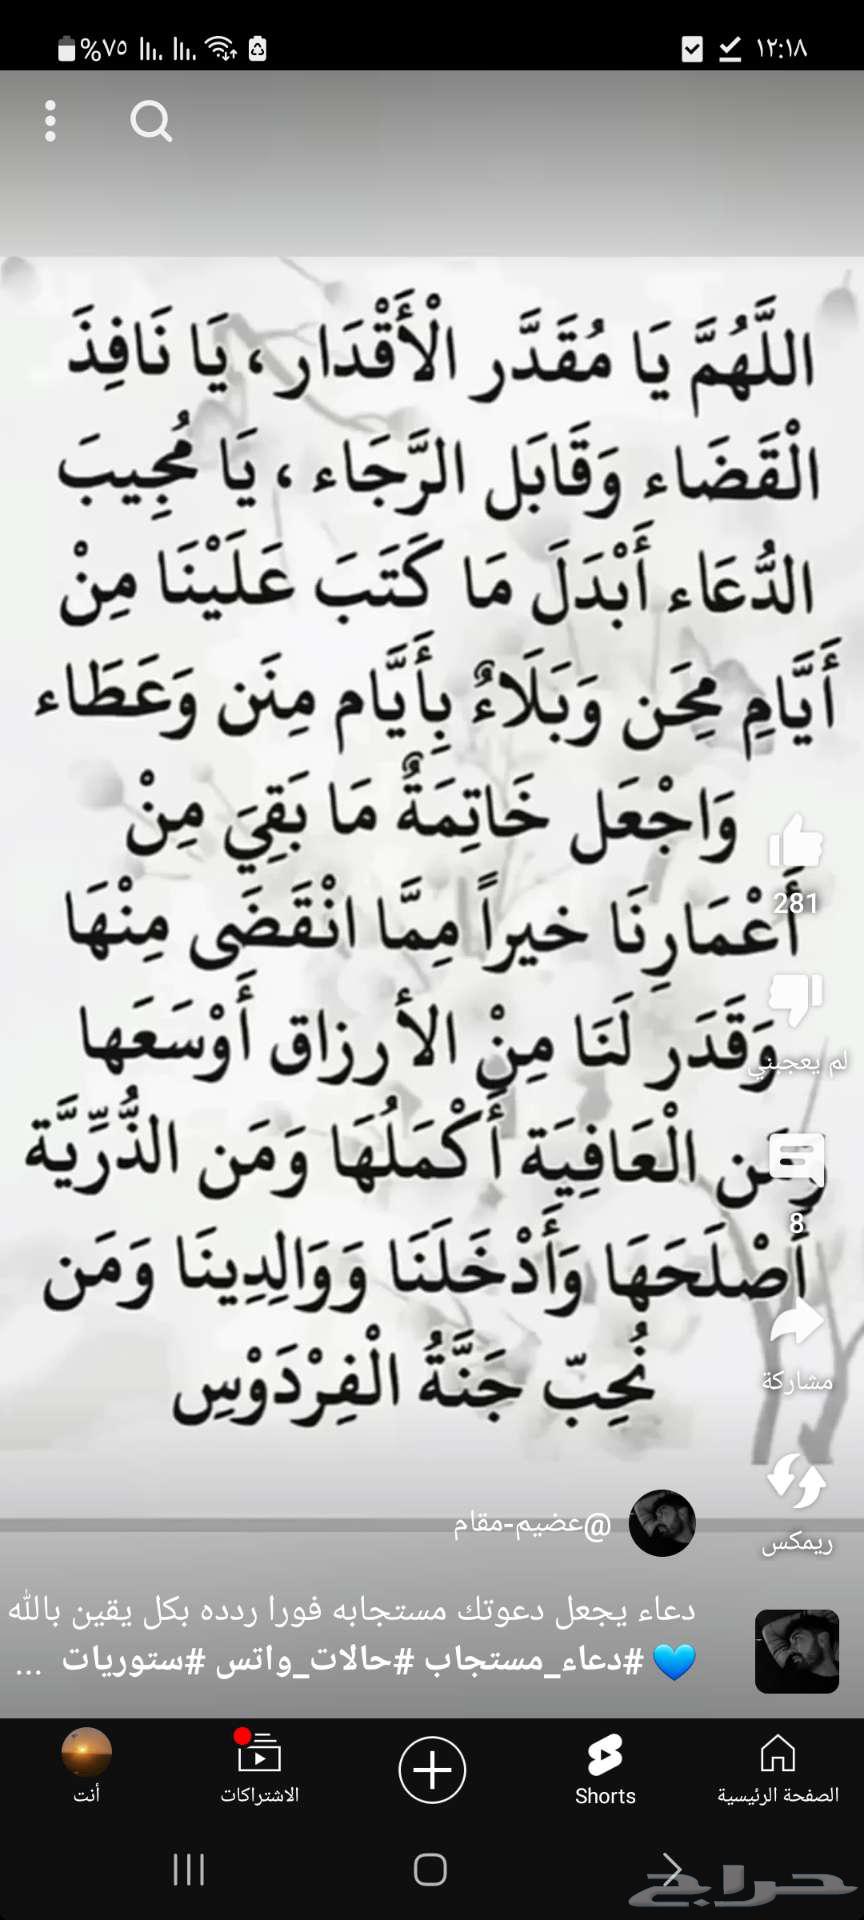 ١٢:١٨
%٧٥
اللَّهُمَّ يَا مُقَدَّر الْأَقْدَار ، يَا نَافِذَ
الْقَضَاء وَقَابَل الرَّجَاء ، يَا مُجِيبَ
الدُّعَاء أَبْدَلَ مَا كَتَبَ عَلَيْنَا مِنْ
أَيَّامِ مِحَن وَبَلَاءُ بِأَيَّام مِنَن وَعَطَاء
وَاجْعَل خَاتِمَةٌ مَا بَقِيَ مِنْ
أَعْمَارِنَا خيراً مِمَّا انْقَضَى مِنْهَا
وَقَدَر لَنَا مِنْ الأرزاق أَوْسَعَها
وَمَن الْعَافِيَة أَكْمَلُهَا وَمَن الذُّرِّيَّة
أَصْلَحَهَا وَأَدْخَلَنَا وَوَالِدِينَا وَمَن
نُحِبّ جَنَّةُ الْفِرْدَوْسِ
281
لم يعجبني
8
مشاركة
ريمكس
@عضيم-مقام
دعاء يجعل دعوتك مستجابه فورا ردده بكل يقين بالله
💙 #دعاء_مستجاب #حالات_واتس #ستوريات ...
الصفحة الرئيسية
Shorts
الاشتراكات
أنت
حراج